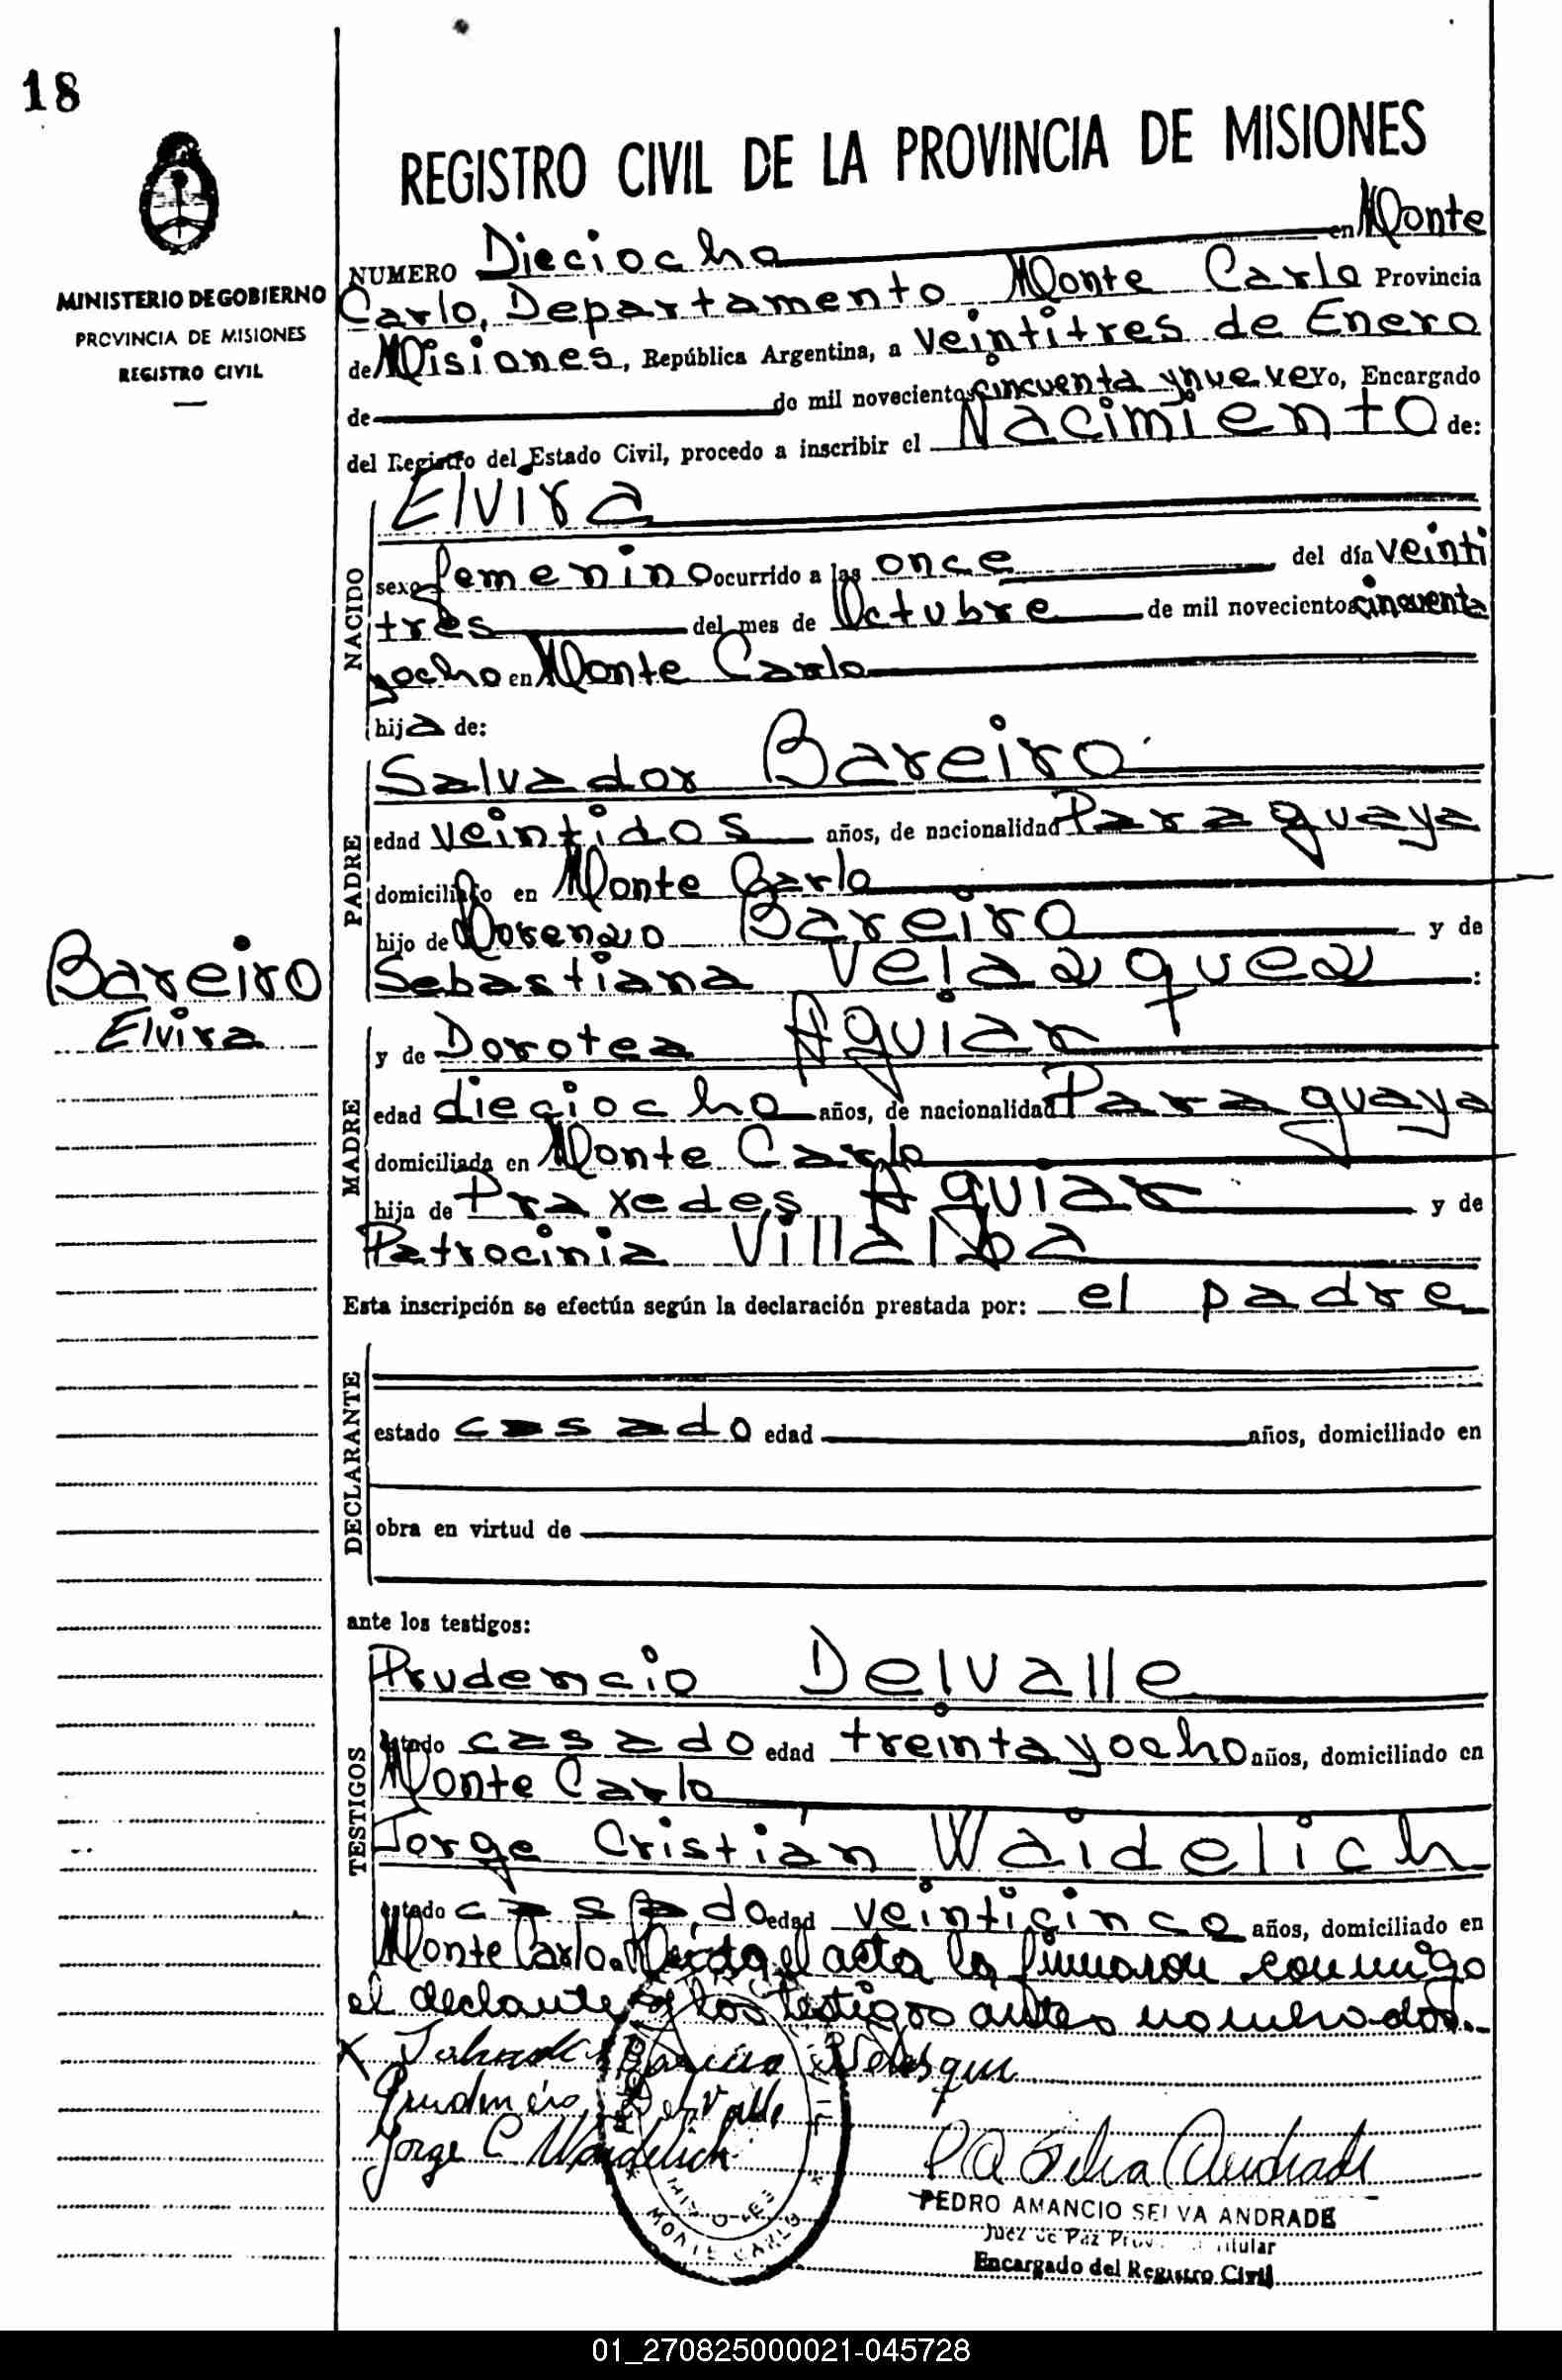 18
REGISTRO CIVIL DE LA PROVINCIA DE MISIONES
MINISTERIO DE GOBIERNO
PROVINCIA DE MISIONES
REGISTRO CIVIL
NUMERO Dieciocho en Monte
Carlo, Departamento Monte Carlo Provincia
de Misiones, República Argentina, a veintitres de Enero
de de mil novecientos cincuenta y nueve Yo, Encargado
del Registro del Estado Civil, procedo a inscribir el Nacimiento de:
NACIDO
Elvira
sexo femenino ocurrido a las once del día veinti
tres del mes de Octubre de mil novecientos cincuenta
y ocho en Monte Carlo
hija de:
PADRE
Salvador Bareiro
edad veintidos años, de nacionalidad Paraguaya
domiciliado en Monte Carlo
hijo de Lorenzo Bareiro y de
Sebastiana Velazquez :
Bareiro
Elvira
MADRE
y de Dorotea Aguiar
edad dieciocho años, de nacionalidad Paraguaya
domiciliada en Monte Carlo
hija de Praxedes Aguiar y de
Patrocinia Villalba
Esta inscripción se efectúa según la declaración prestada por: el padre
DECLARANTE
estado casado edad años, domiciliado en
obra en virtud de
ante los testigos:
TESTIGOS
Prudencio Delvalle
estado casado edad treinta y ocho años, domiciliado en
Monte Carlo
Jorge Cristián Waidelich
estado casado edad veinticinco años, domiciliado en
Monte Carlo. Leida el acta la firmaron conmigo
el declante y los testigos antes nombrados.
x Bareiro
Prudencio Delvalle
Jorge C Waidelich
P A Selva Andrade
PEDRO AMANCIO SELVA ANDRADE
Juez de Paz Titular
Encargado del Registro Civil
MISIONES
MONTE CARLO
01_270825000021-045728